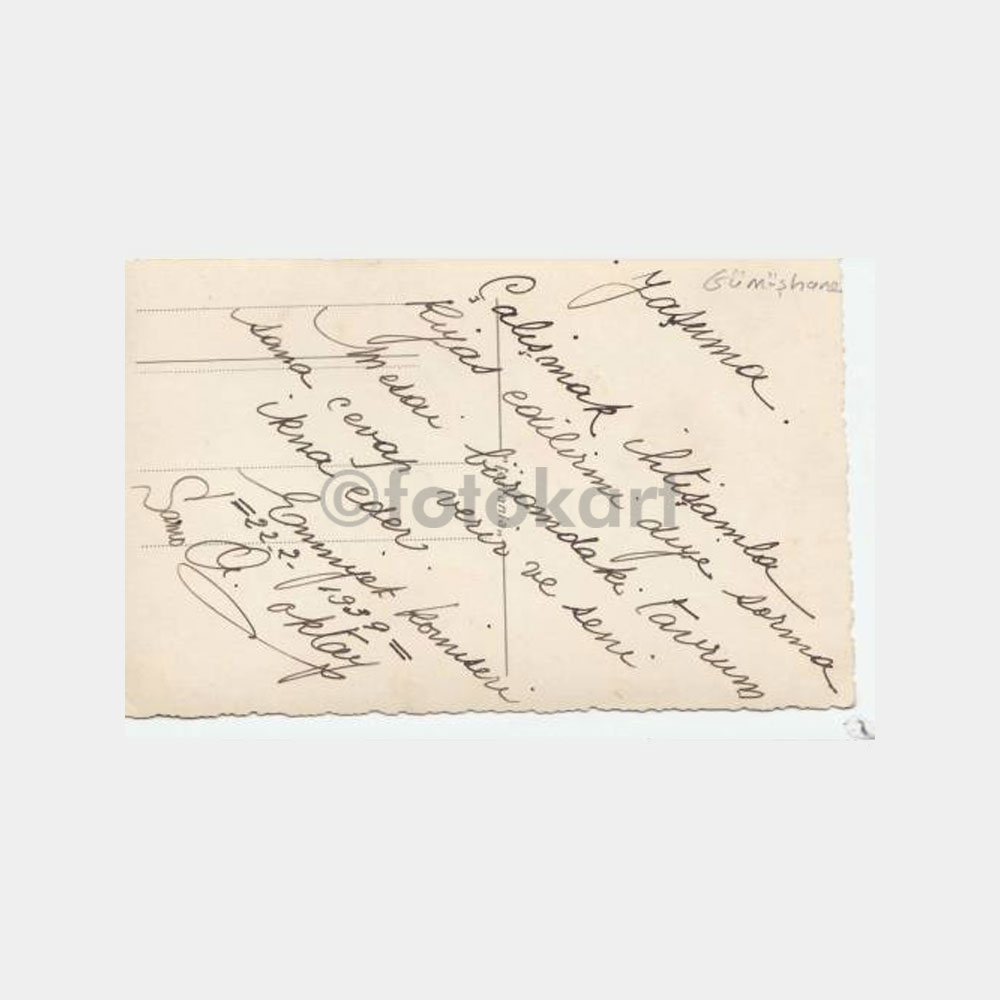 Gümüşhane
Yaşıma.
Çalışmak ihtişamla
Kıyas edilirmi diye sorma
Mesai büromdaki tavrum
sana cevap verir ve seni
ikna eder.
Emniyet komiseri
=22.2.1939=
O. oktay
©fotokart